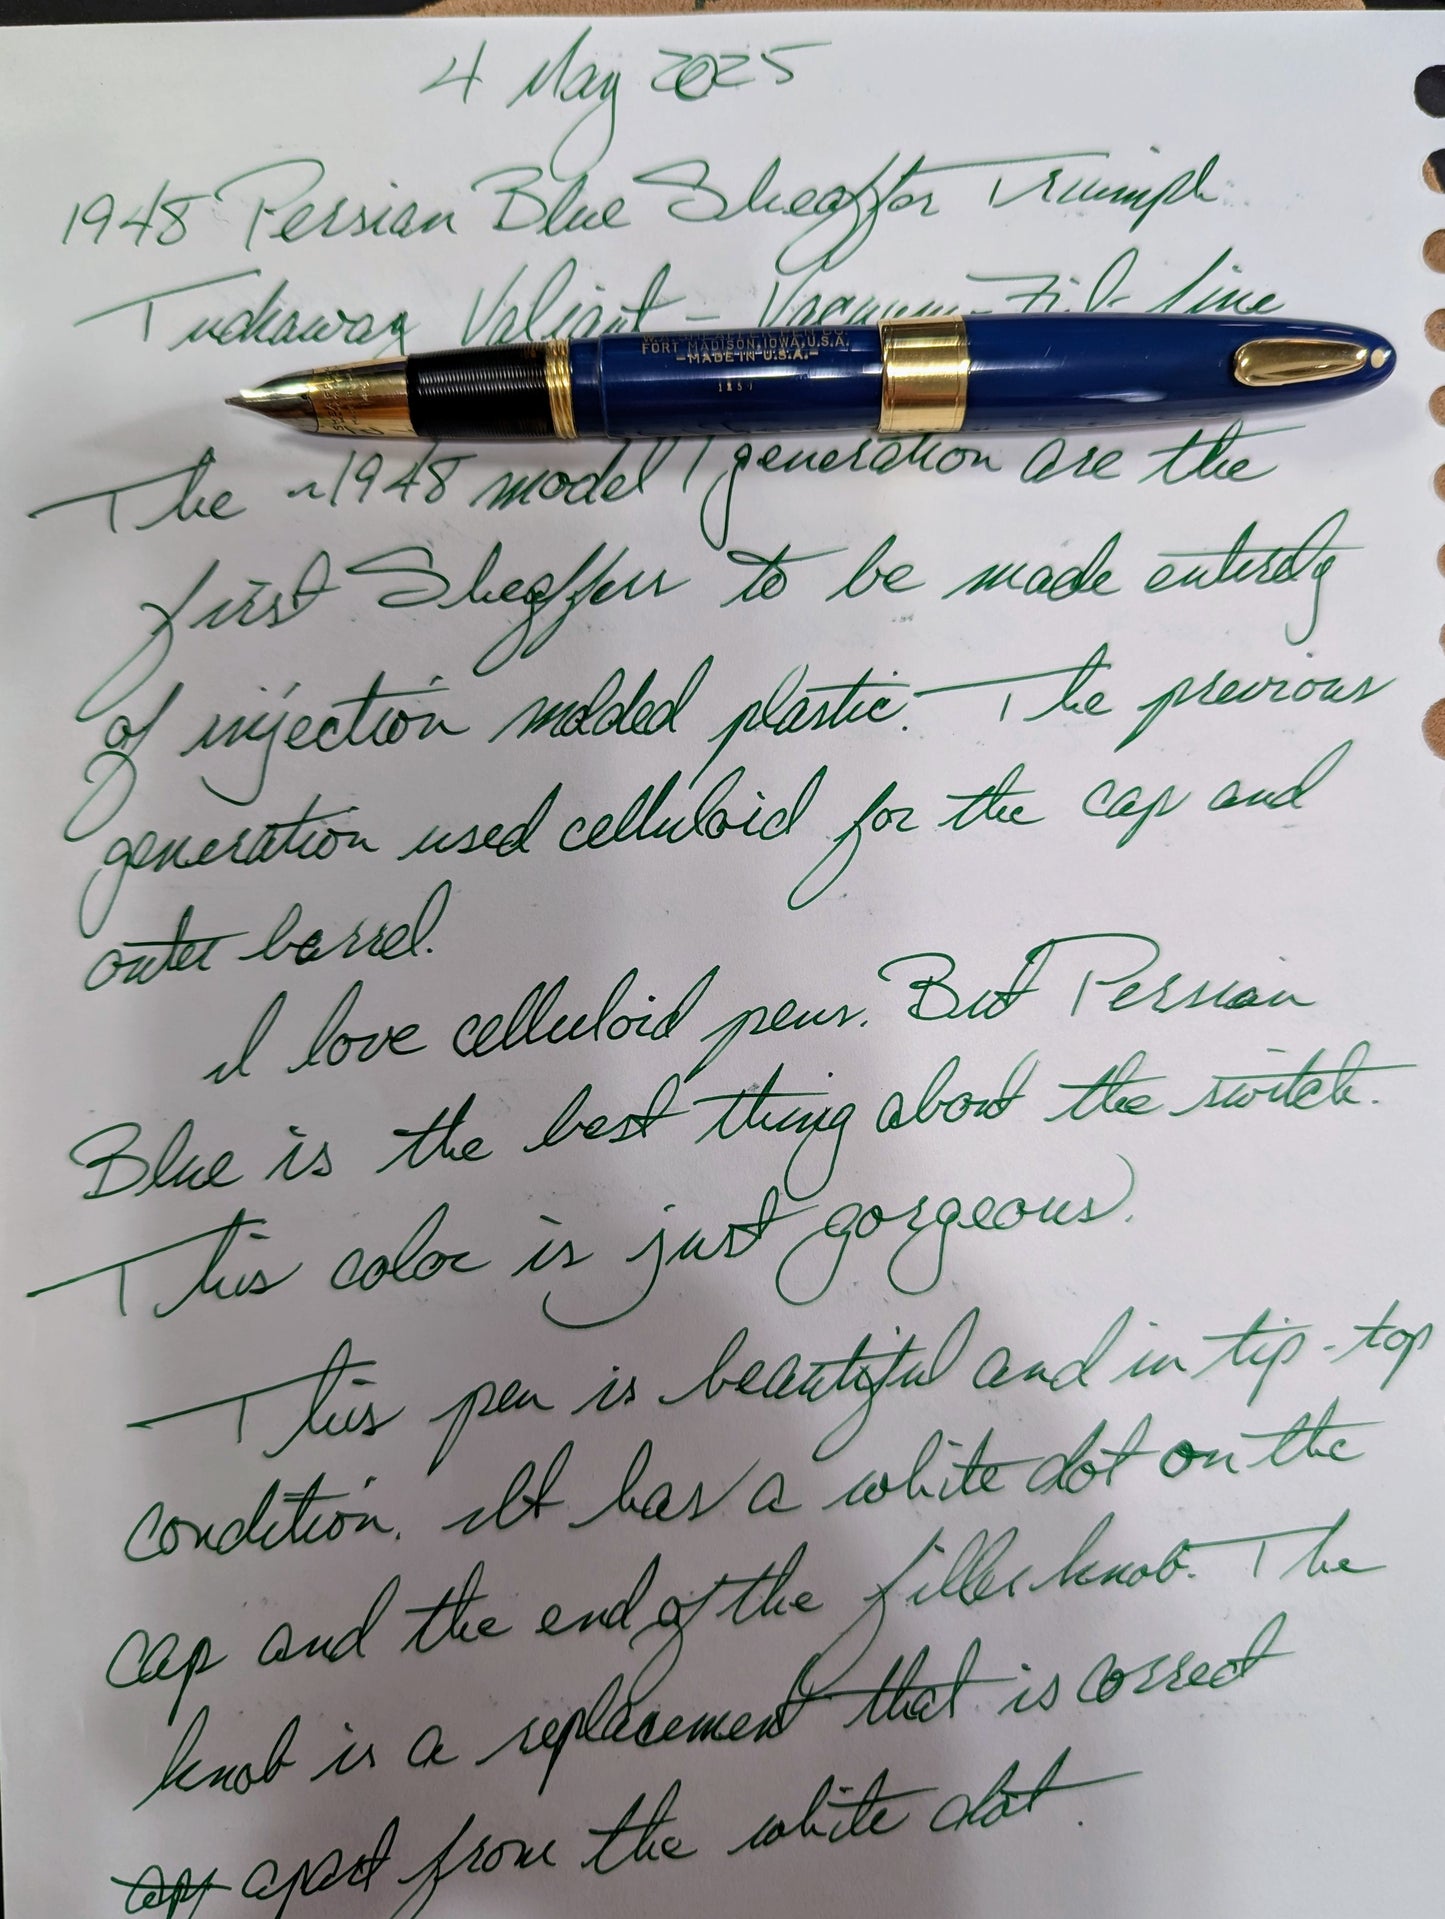 4 May 2025
1948 Persian Blue Sheaffer Triumph
Tuckaway Valiant - Vacuum-Fil line
FORT MADISON, IOWA, U.S.A.
-MADE IN U.S.A.-
The ~1948 model generation are the
first Sheaffers to be made entirely
of injection molded plastic. The previous
generation used celluloid for the cap and
outer barrel.
I love celluloid pens. But Persian
Blue is the best thing about the switch.
This color is just gorgeous.
This pen is beautiful and in tip-top
condition. It has a white dot on the
cap and the end of the filler knob. The
knob is a replacement that is correct
apart from the white dot.